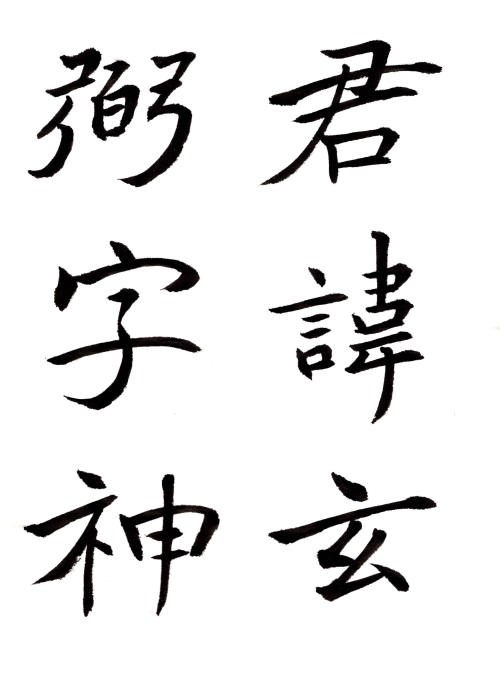 君諱玄
弼字神